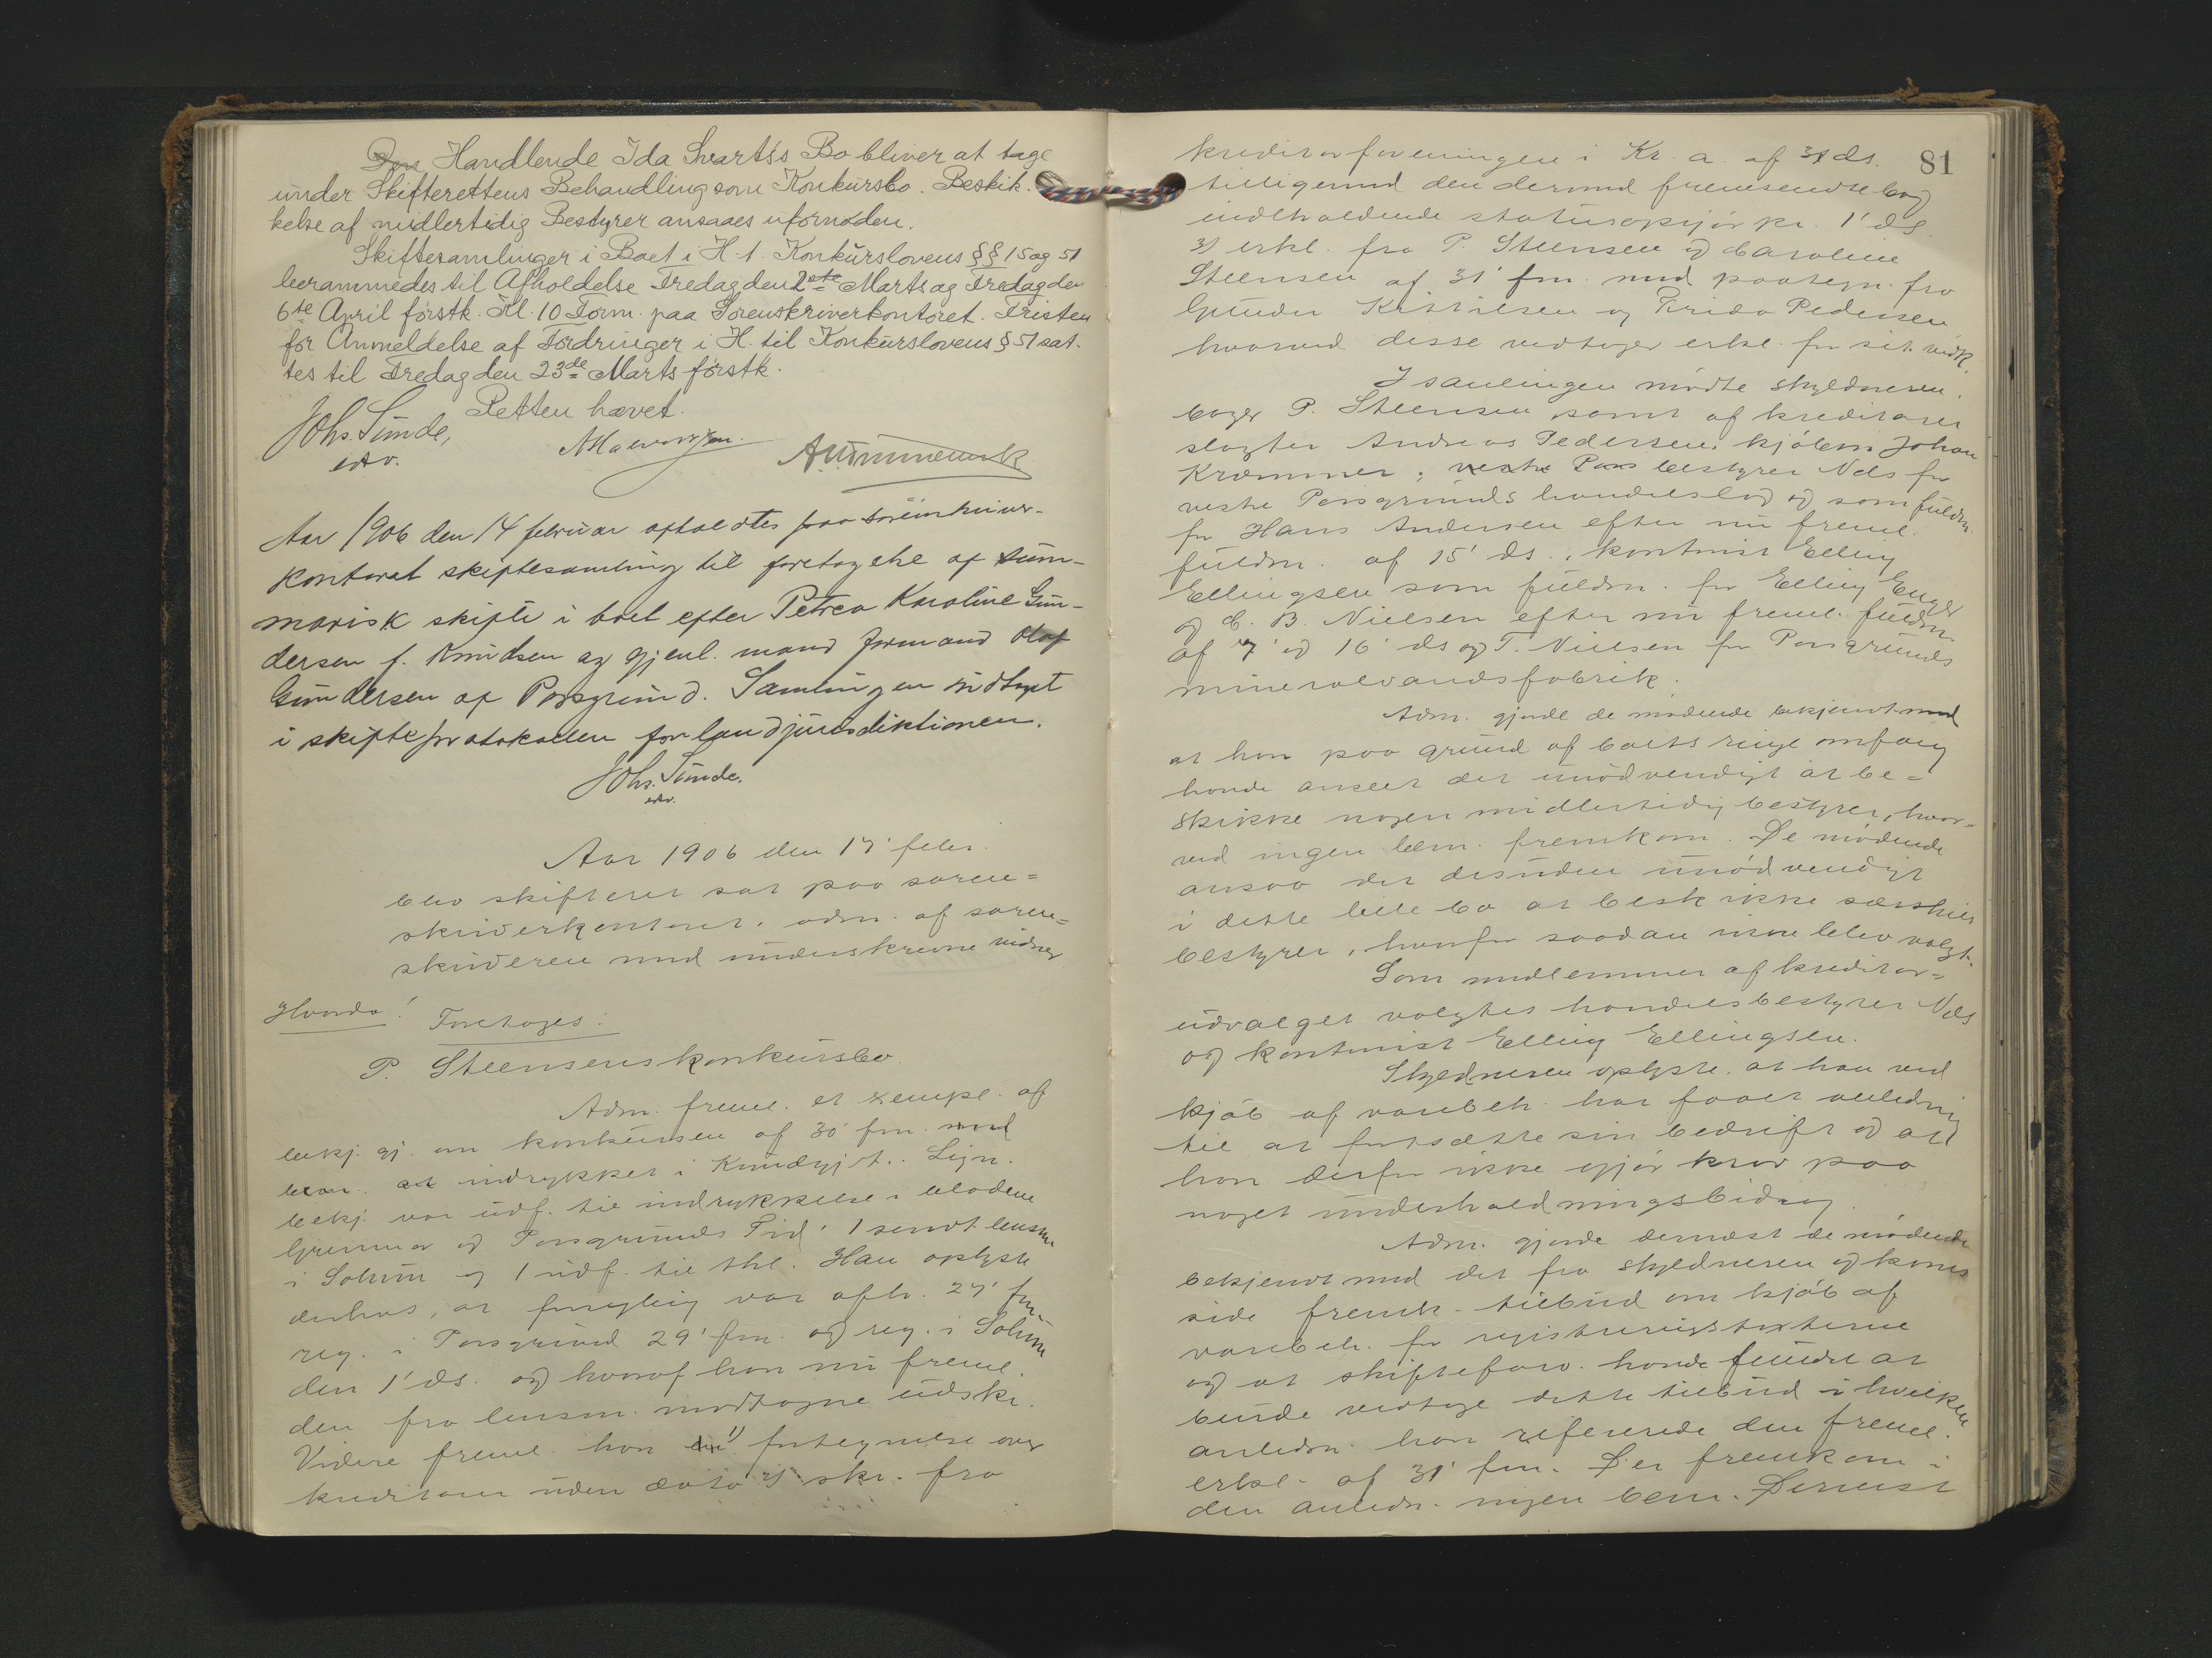 Handlende Ida Svarts's Bo bliver at tage
under Skifterettens Behandling som Konkursbo. Beskik-
kelse af midlertidig Bestyrer ansaaes ufornøden.
Skiftesamlinger i Boet i H. t. Konkurslovens §§ 15 og 51
berammedes til Afholdelse Fredag den 2den Marts og Fredag den
6te April førstk. Kl. 10 Form. paa Sorenskriverkontoret. Fristen
for Anmeldelse af Fordringer i H. til Konkurslovens § 51 sat-
tes til Fredag den 23de Marts førstk.
Retten hævet.
Johs. Sunde,
edv.
Aar 1906 den 14 februar afholdtes paa sorenskriver-
kontoret skiftesamling til foretagelse af sum-
marisk skifte i boet efter Petrea Karoline Gun-
dersen f. Knudsen og gjenl. mand formand Olaf
Gundersen af Porsgrund. Samlingen indtaget
i skifteprotokollen for landjurisdiktionen.
Johs. Sunde.
edv.
Aar 1906 den 17' febr.
blev skifteret sat paa soren=
skriverkontoret, adm. af soren=
skriveren med underskrevne vidner
Hvorda!
Foretages:
P. Steensens konkursbo
Adm. freml. et exempl. af
bekj. gj. om konkursen af 30' fm. med
indrykket i Kundgj.t. Lign.
bekj. var udf. til indrykkelse i bladene
Grenmar og Porsgrunds Tid. 1 sendt lensm.
i Solum og 1 udf. til thl. Han oplyste
derhos, at forsegling var afh. 27' fm.
reg. i Porsgrund 29' fm. og reg. i Solum
den 1' ds. og hvoraf han nu freml.
den fra lensm. modtagne udskr.
Videre freml. han 1) fortegnelse over
kreditorer uden dato 2) skr. fra
81
kreditorforeningen i Kr. a. af 31 ds.
tilligemed den dermed fremsendte bog
indholdende statusopgjør pr. 1' ds.
3) erkl. fra P. Steensen og Caroline
Steensen af 31' fm. med paategn. fra
Gunder Kittilsen og Frida Pedersen
hvorved disse vedtager erkl. for sit vedk.
I samlingen mødte skyldneren,
bager P. Steensen samt af kreditorer
slagter Andreas Pedersen, kjøbm. Johan
Kræmmer, bestyrer Nels for
vestre Porsgrunds handelslag og som fuldm.
for Hans Andersen efter nu freml.
fuldm. af 15' ds., kontorist Elling
Ellingsen som fuldm. for Elling Enger
og C. B. Nielsen efter nu freml. fuldm.
af 7' og 16' ds og T. Nielsen for Porsgrunds
mineralvandsfabrik.
Adm. gjorde de mødende bekjendt med
at han paa grund af boets ringe omfang
havde anseet det unødvendigt at be=
skikke nogen midlertidig bestyrer, hvor-
ved ingen bem. fremkom. De mødende
ansaa det desuden unødvendigt
i dette lille bo at beskikke særskilt
bestyrer, hvorfor saadan ikke blev valgt.
Som medlemmer af kreditor=
udvalget valgtes handelsbestyrer Nels
og kontorist Elling Ellingsen.
Skyldneren oplyste, at han ved
kjøb af varebeh. har faaet anledning
til at fortsætte sin bedrift og at
han derfor ikke gjør krav paa
noget underholdningsbidrag.
Adm. gjorde dernæst de mødende
bekjendt med det fra skyldneren og kones
side fremk. tilbud om kjøb af
varebeh. for registreringstaxterne
og at skifteforv. havde fundet at
burde vedtage dette tilbud i hvilken
anledn. han refererede den freml.
erkl. af 31' fm. Der fremkom i
den anledn. ingen bem. Dernæst